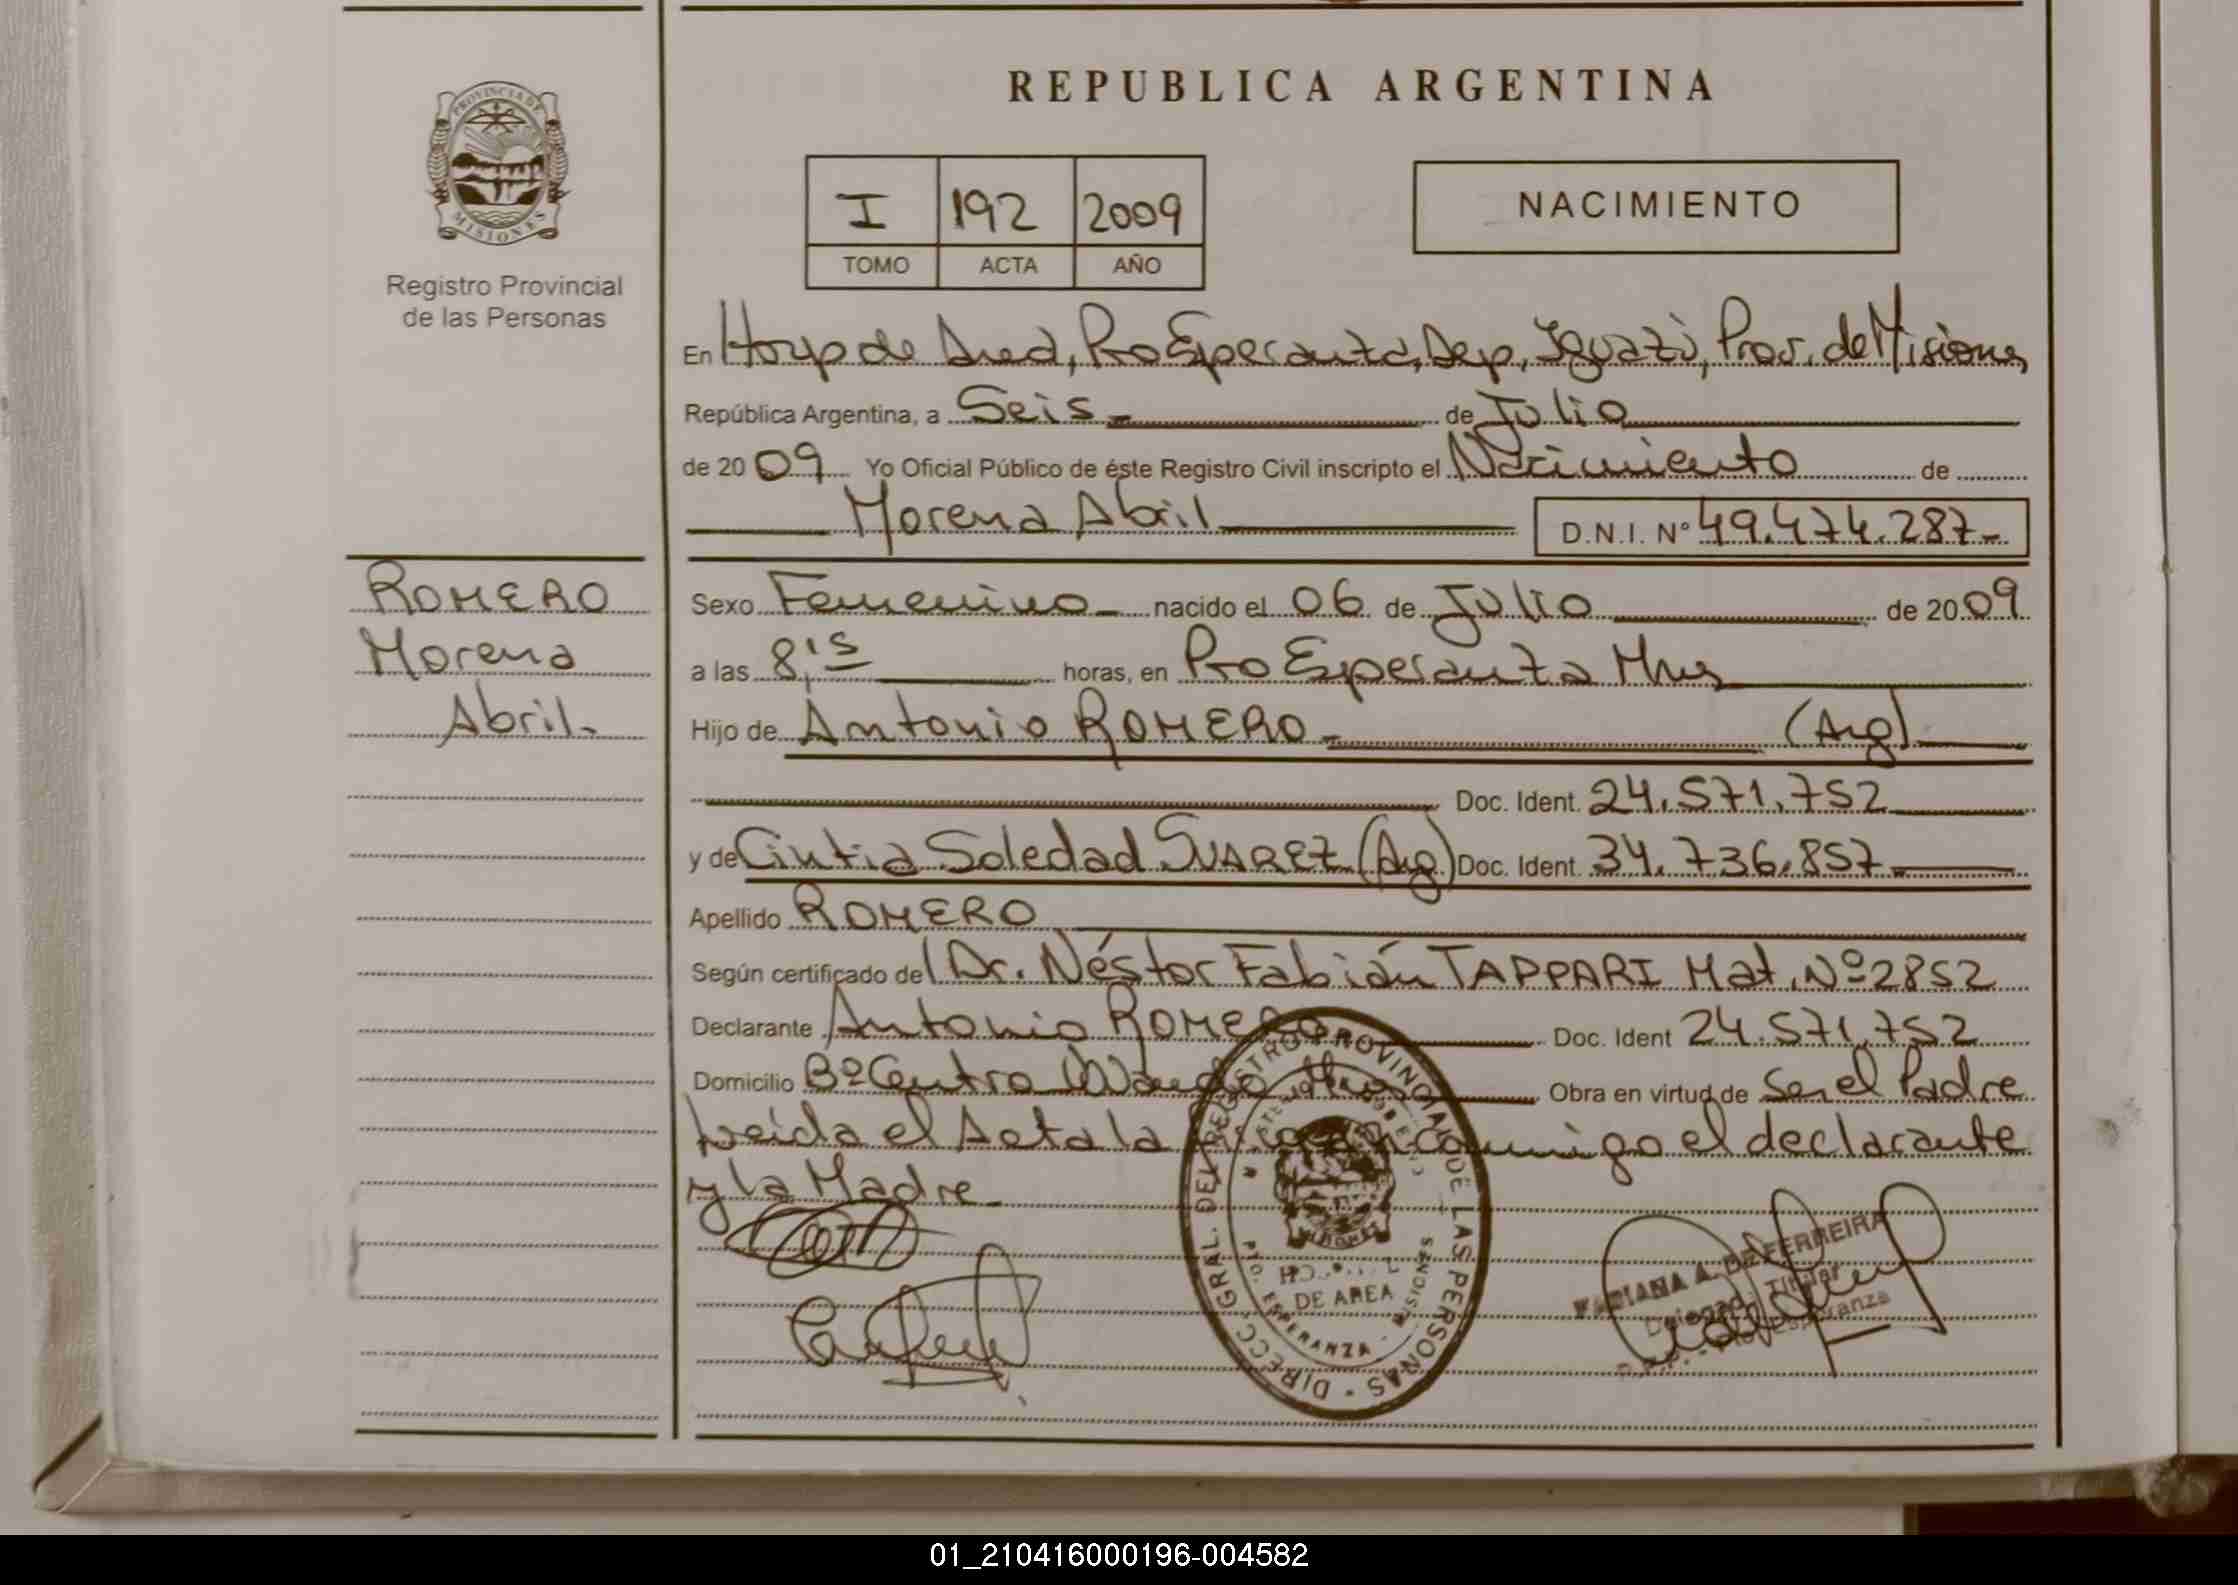 PROVINCIA DE
MISIONES
Registro Provincial
de las Personas
REPUBLICA ARGENTINA
I 192 2009
TOMO ACTA AÑO
NACIMIENTO
En Hosp de Area, Pto Esperanza, Dep, Iguazú, Prov. de Misiones
República Argentina, a Seis de Julio
de 2009 Yo Oficial Público de éste Registro Civil inscripto el Nacimiento de
Morena Abril D.N.I. Nº 49.474.287-
ROMERO
Morena
Abril-
Sexo Femenino nacido el 06 de Julio de 2009
a las 8,15 horas, en Pto Esperanza Mnes
Hijo de Antonio ROMERO (Arg)
Doc. Ident. 24.571.752
y de Cintia Soledad SUAREZ (Arg) Doc. Ident. 34.736.857
Apellido ROMERO
Según certificado del Dr. Néstor Fabián TAPPARI Mat. Nº 2852
Declarante Antonio ROMERO Doc. Ident 24.571.752
Domicilio Bº Centro Wanda Mnes Obra en virtud de Ser el Padre
Leída el Acta la conmigo el declarante
y la Madre-
DIRECC. GRAL. DEL REGISTRO PROVINCIAL DE LAS PERSONAS
DE AREA
PTO. ESPERANZA - MISIONES
FABIANA A. DE FERREIRA
Titular
01_210416000196-004582